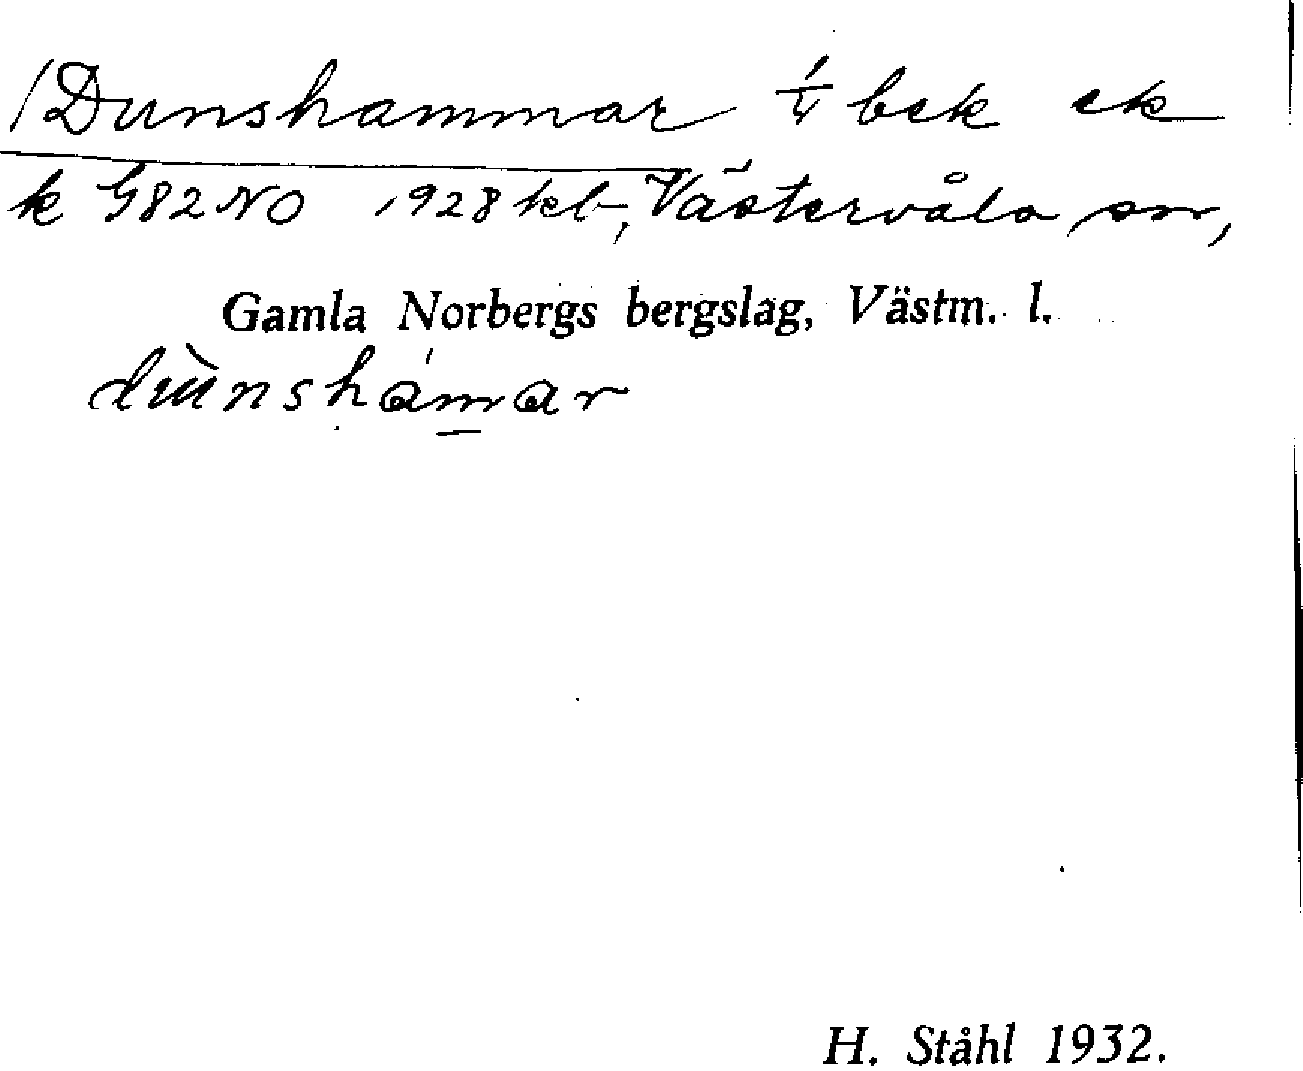 /Dunshammar 1/4 bek ek
k G82NO 1928 kb, Västervåla sn,
Gamla Norbergs bergslag, Västm. l.
dùnshámar
H. Ståhl 1932.